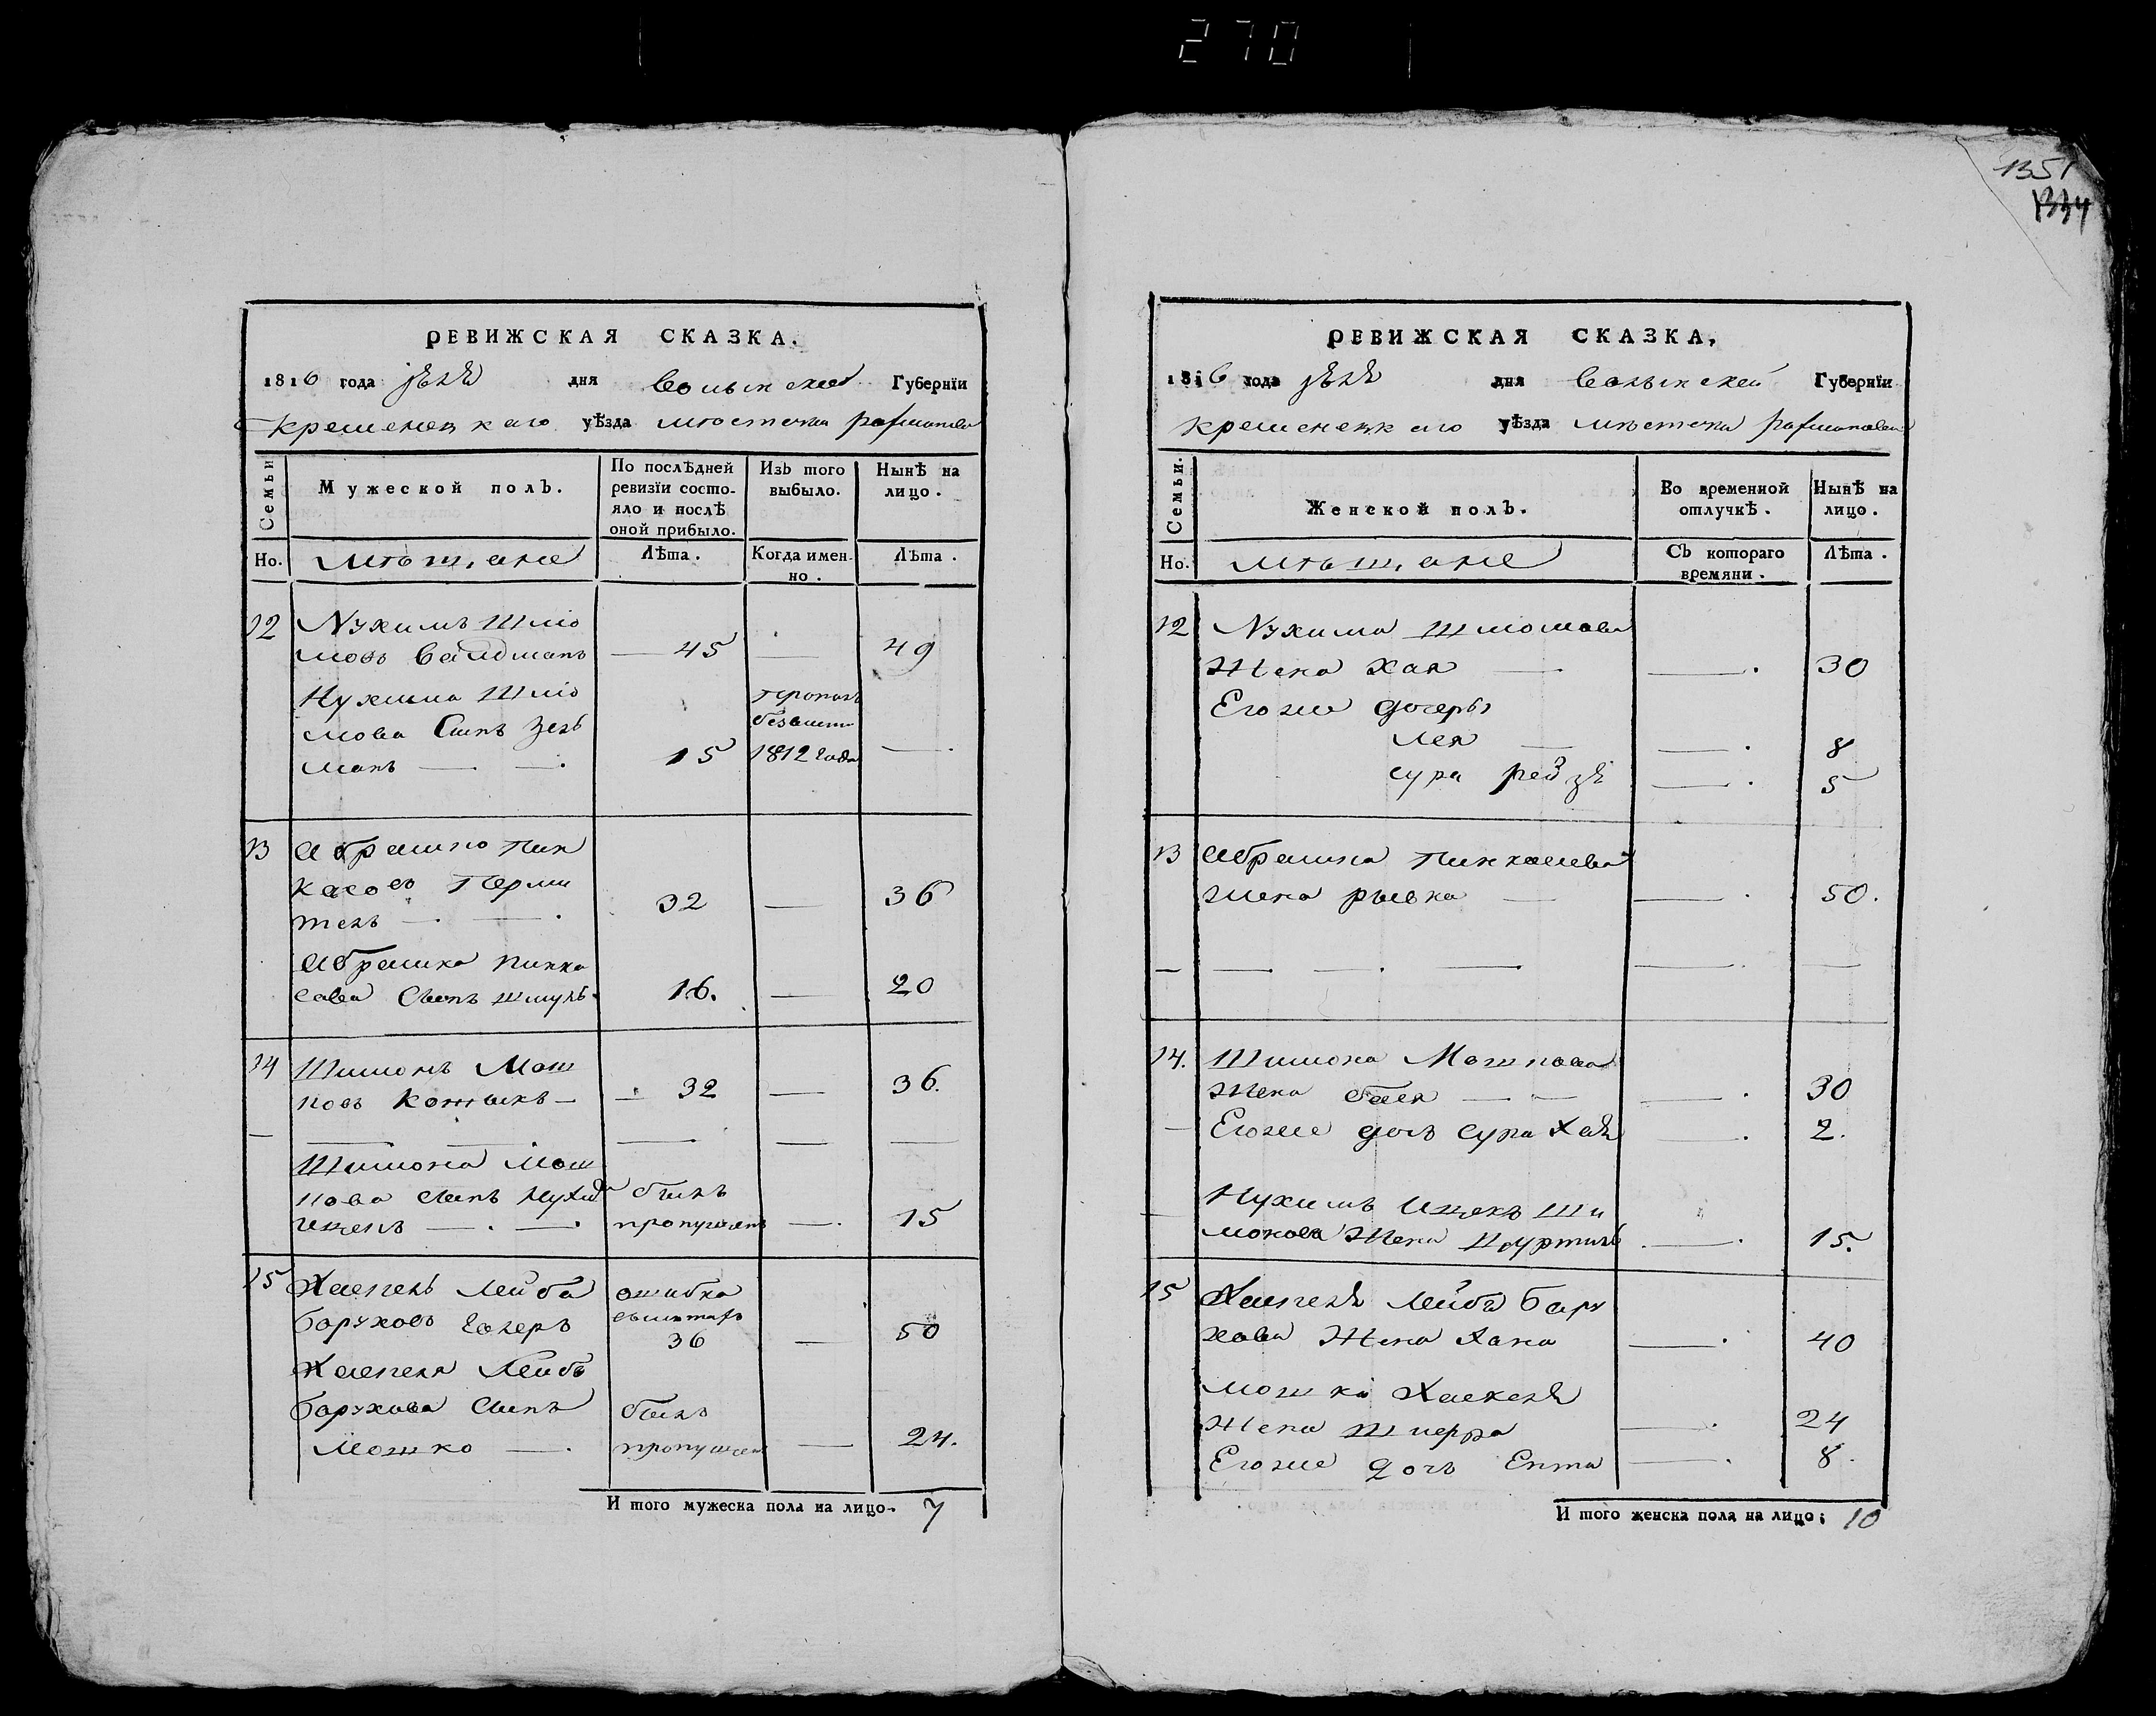 270
1351
1334
РЕВИЖСКАЯ СКАЗКА.
1816 года іюля дня Волынской Губерніи
Кременецкаго уѣзда мѣстечка Рахманова
Семьи
Мужеской полъ.
По послѣдней ревизіи состояло и послѣ оной прибыло.
Изъ того выбыло.
Нынѣ на лицо.
Но.
Мѣщане
Лѣта.
Когда именно.
Лѣта.
12 Нухимъ Шлио
мовъ Вайдманъ 45 49
Нухима Шлио
мова Сынъ Зель
манъ 15 1812 года
13 Абрашко Пин
касовъ Перли
тель 32 36
Абрашка Пинка
сова Сынъ Шмуль 16. 20
14 Шимонъ Мош
ковъ 32 36.
Шимона Мош
кова Сынъ Нухим былъ
Ицекъ пропущенъ 15
15 Хаскель Лейба ошибка
Боруховъ 36 50
Хаскеля Лейбы
Борухова Сынъ былъ
Мошко пропущен 24.
И того мужеска пола на лицо. 7
РЕВИЖСКАЯ СКАЗКА,
1816 года іюля дня Волынской Губерніи
Кременецкаго уѣзда мѣстечка Рахманова
Семьи.
Женской полъ.
Во временной отлучкѣ.
Нынѣ на лицо.
Но.
Мѣщане
Съ котораго времяни.
Лѣта.
12 Нухима Шлиомова
Жена Хая 30
Егоже дочеры
Лея 8
Сура Рейзя 5
13 Абрашка Пинкасова
Жена Рывка 50.
14. Шимона Мошкова
Жена Бася 30
Егоже дочь Сура Хая 2.
Нухимъ Ицекъ Ши
монова Жена 15.
15 Хаскеля Лейбы Бору
хова Жена Хана 40
Мошка Хаскеля
Жена Шпера 24
Егоже дочь Ента 8.
И того женска пола на лицо; 10